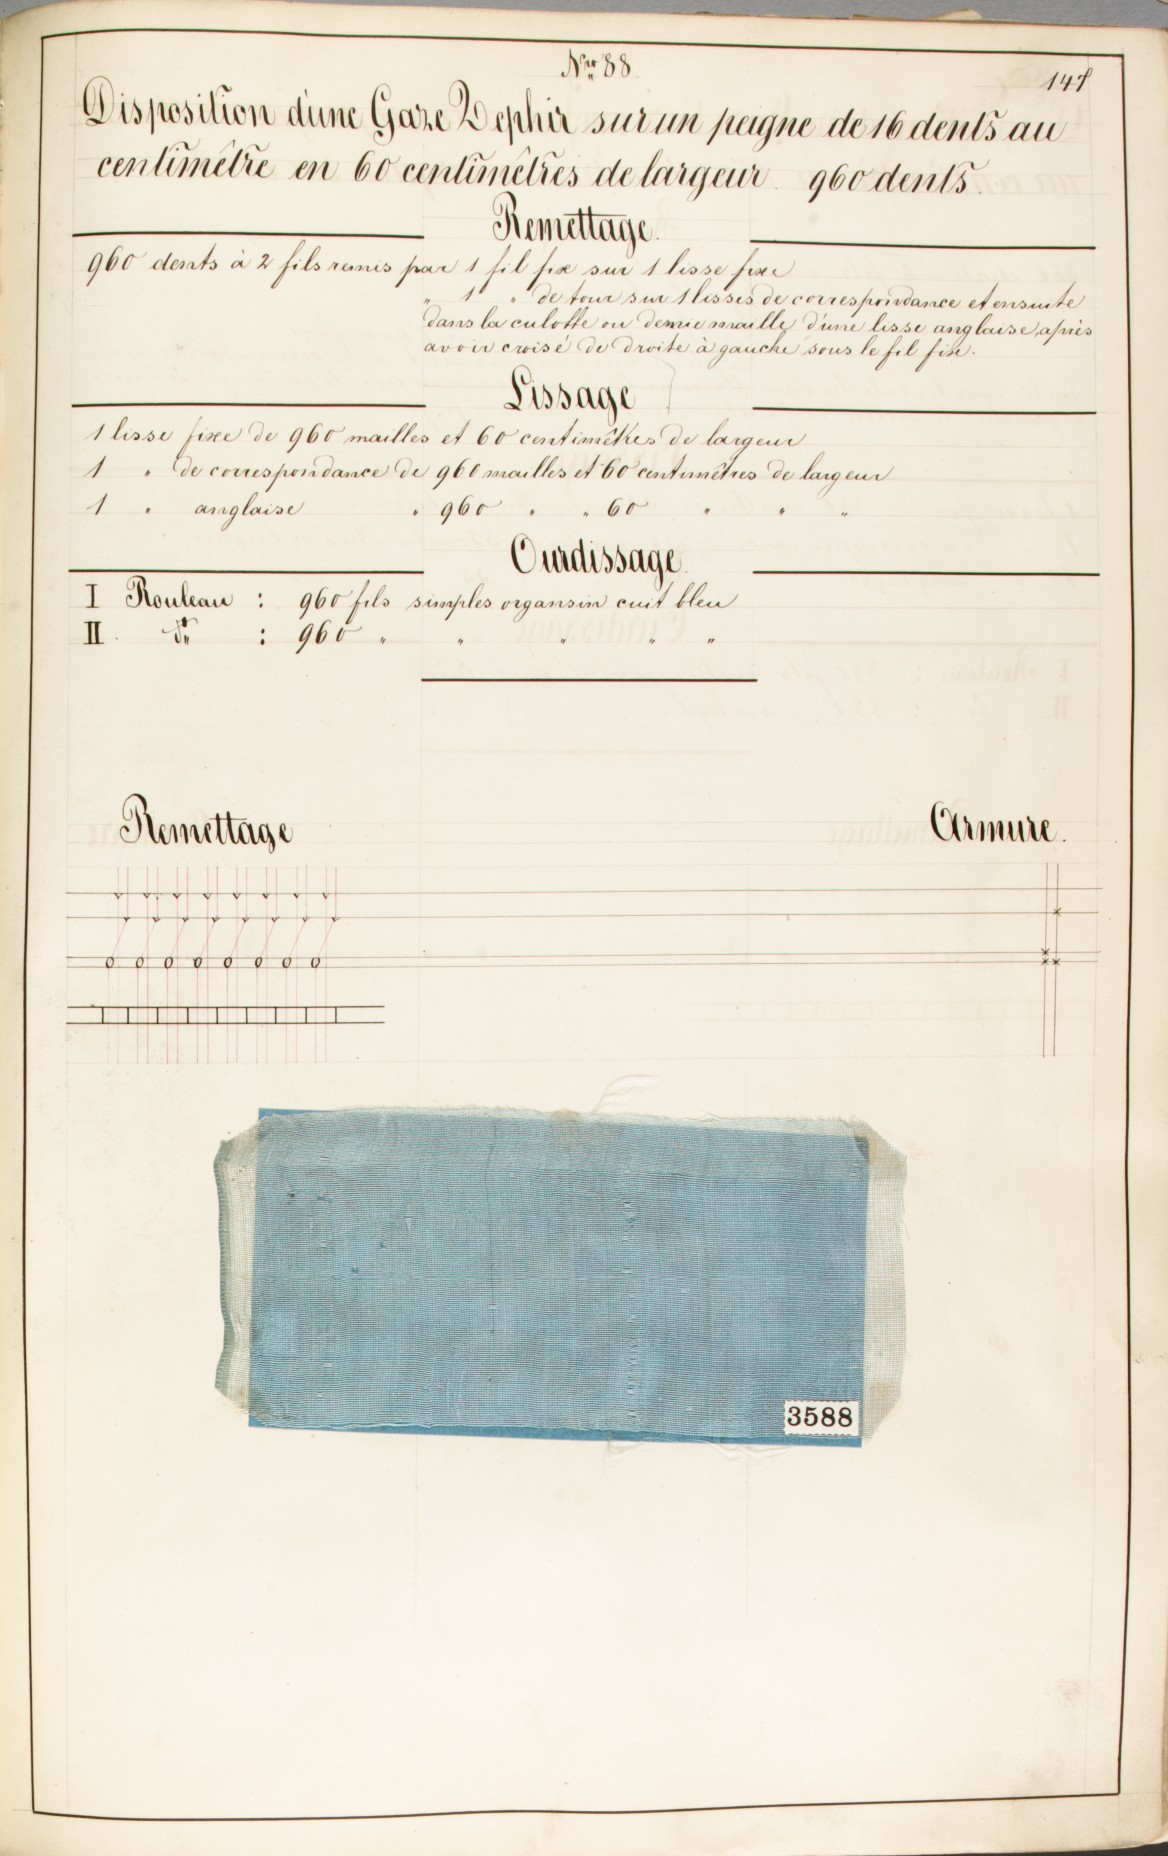 Nro 88
147
Disposition d'une Gaze Zephir sur un peigne de 16 dents au
centimêtre en 60 centimêtres de largeur. 960 dents.
Remettage.
960 dents à 2 fils remis par 1 fil fixe sur 1 lisse fixe
" 1 " de tour sur 1 lisses de correspondance et ensuite
dans la culotte ou demie maille d'une lisse anglaise, après
avoir croisé de droite à gauche sous le fil fixe.
Lissage
1 lisse fixe de 960 mailles et 60 centimêtres de largeur
1 " de correspondance de 960 mailles et 60 centimêtres de largeur
1 " anglaise " 960 " " 60 " " "
Ourdissage.
I Rouleau : 960 fils simples organsin cuit bleu
II. do : 960 " " " " "
Remettage
Armure.
3588